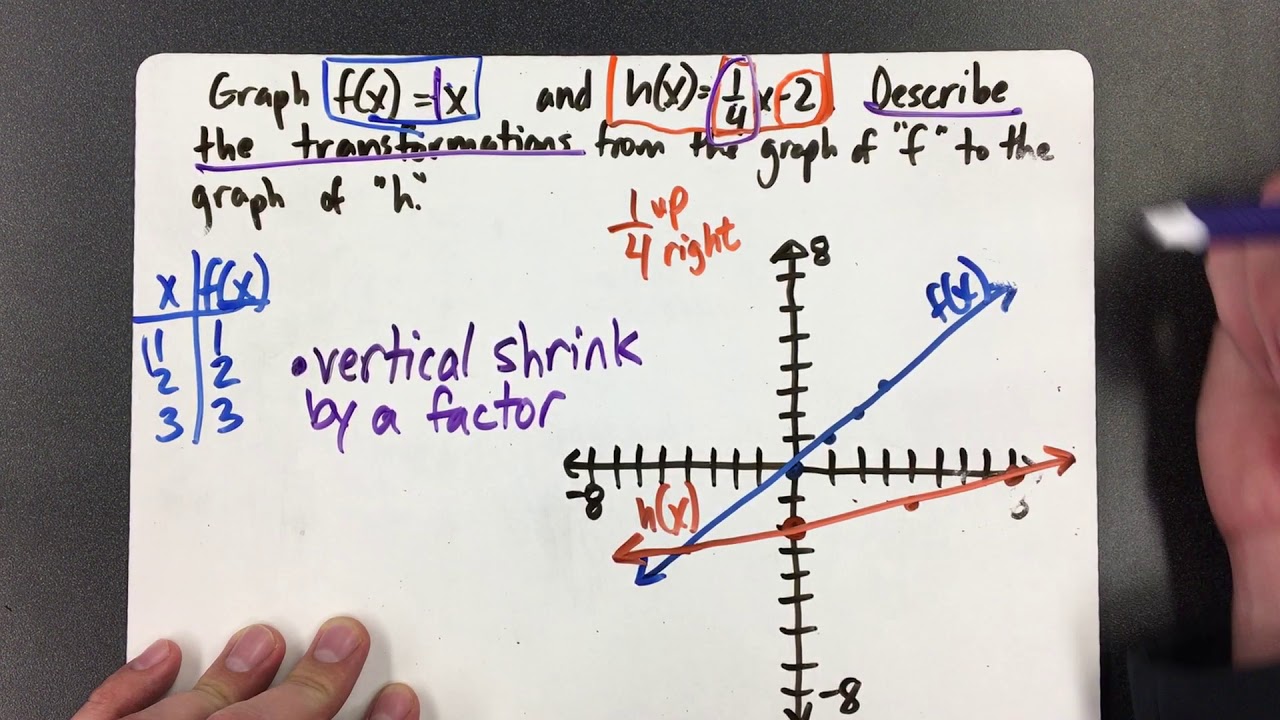 Graph f(x) = 1x and h(x) = 1/4 x - 2. Describe
the transformations from the graph of "f" to the
graph of "h."
1 up
4 right
x f(x)
1 1
2 2
3 3
• vertical shrink
by a factor
8
f(x)
-8
h(x)
-8